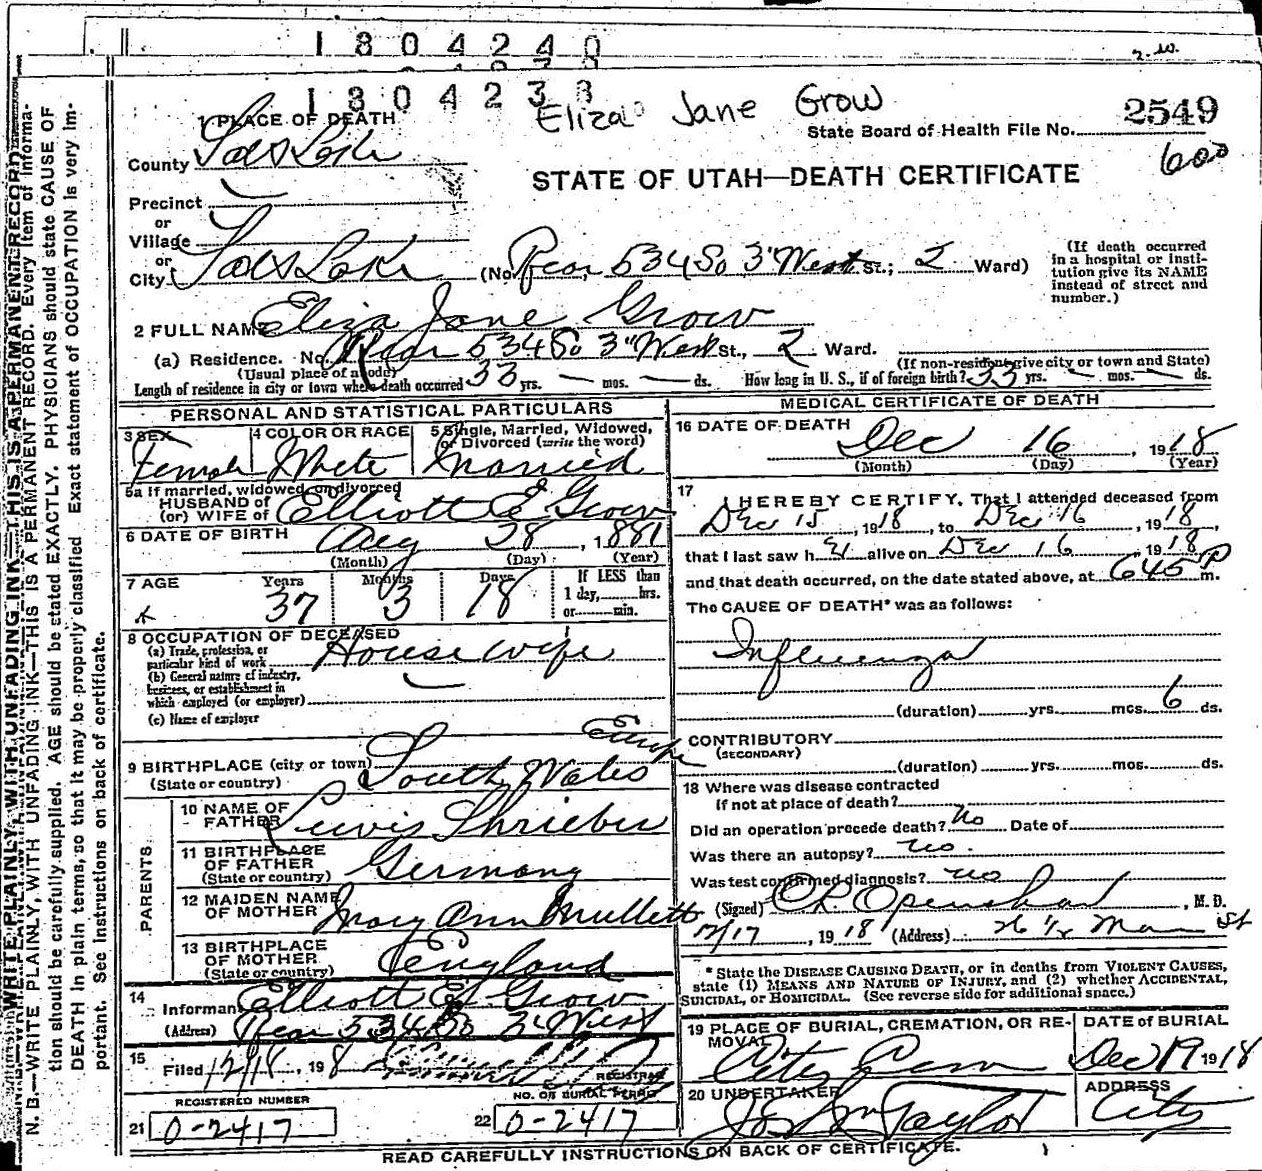 1804240
2-10.
1804238
Eliza Jane Grow
State Board of Health File No. 2549
600
1 PLACE OF DEATH
County Salt Lake
STATE OF UTAH—DEATH CERTIFICATE
Precinct
or
Village
or
City Salt Lake (No. Rear 534 So 3" West St.; 2 Ward)
(If death occurred in a hospital or institution give its NAME instead of street and number.)
2 FULL NAME Eliza Jane Grow
(a) Residence. No. Rear 534 So 3" West St., 2 Ward.
(Usual place of abode) (If non-resident give city or town and State)
Length of residence in city or town where death occurred 33 yrs. — mos. — ds. How long in U. S., if of foreign birth? 33 yrs. — mos. — ds.
PERSONAL AND STATISTICAL PARTICULARS
3 SEX Female
4 COLOR OR RACE White
5 Single, Married, Widowed, or Divorced (write the word) Married
5a If married, widowed, or divorced
HUSBAND of
(or) WIFE of Elliott E Grow
6 DATE OF BIRTH Aug 28, 1881
(Month) (Day) (Year)
7 AGE Years 37 Months 3 Days 18 If LESS than 1 day, hrs. or min.
8 OCCUPATION OF DECEASED
(a) Trade, profession, or particular kind of work Housewife
(b) General nature of industry, business, or establishment in which employed (or employer)
(c) Name of employer
9 BIRTHPLACE (city or town) South Wales Europe
(State or country)
PARENTS
10 NAME OF FATHER Lewis Shrieber
11 BIRTHPLACE OF FATHER (State or country) Germany
12 MAIDEN NAME OF MOTHER Mary Ann Mullett
13 BIRTHPLACE OF MOTHER (State or country) England
14 Informant Elliott E Grow
(Address) Rear 534 So 3" West
15 Filed 12/18, 1918
REGISTRAR
REGISTERED NUMBER
21 0-2417
NO. OR BURIAL PERMIT
22 0-2417
MEDICAL CERTIFICATE OF DEATH
16 DATE OF DEATH
Dec 16, 1918
(Month) (Day) (Year)
17 I HEREBY CERTIFY, That I attended deceased from
Dec 15, 1918, to Dec 16, 1918,
that I last saw her alive on Dec 16, 1918
and that death occurred, on the date stated above, at 645 P m.
The CAUSE OF DEATH* was as follows:
Influenza
(duration) yrs. mos. 6 ds.
CONTRIBUTORY
(SECONDARY)
(duration) yrs. mos. ds.
18 Where was disease contracted
If not at place of death?
Did an operation precede death? No Date of
Was there an autopsy? no.
Was test confirmed diagnosis? no
(Signed) C.R. Openshaw, M. D.
12/17, 1918 (Address) 26 1/2 Main St
* State the DISEASE CAUSING DEATH, or in deaths from VIOLENT CAUSES,
state (1) MEANS AND NATURE OF INJURY, and (2) whether ACCIDENTAL,
SUICIDAL, or HOMICIDAL. (See reverse side for additional space.)
19 PLACE OF BURIAL, CREMATION, OR REMOVAL City Cem
DATE of BURIAL Dec 19 1918
20 UNDERTAKER Jos Wm Taylor
ADDRESS City
READ CAREFULLY INSTRUCTIONS ON BACK OF CERTIFICATE.
WRITE PLAINLY, WITH UNFADING INK—THIS IS A PERMANENT RECORD
N. B.—WRITE PLAINLY, WITH UNFADING INK—THIS IS A PERMANENT RECORD. Every item of informa-
tion should be carefully supplied. AGE should be stated EXACTLY. PHYSICIANS should state CAUSE OF
DEATH in plain terms, so that it may be properly classified. Exact statement of OCCUPATION is very im-
portant. See instructions on back of certificate.